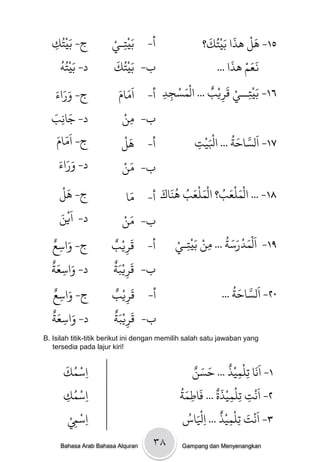 ١٥- هَلْ هذَا بَيْتُكَ؟ أ- بَيْتِيْ ج- بَيْتُكِ
نَعَمْ هذَا ... ب- بَيْتُكَ د- بَيْتُهُ
١٦- بَيْتِيْ قَرِيْبٌ ... الْمَسْجِدِ أ- اَمَامَ ج- وَرَاءَ
ب- مِنْ د- جَانِبَ
١٧- اَلسَّاحَةُ ... الْبَيْتِ أ- هَلْ ج- اَمَامَ
ب- مَنْ د- وَرَاءَ
١٨- ... الْمَلْعَبُ؟ الْمَلْعَبُ هُنَاكَ أ- مَا ج- هَلْ
ب- مَنْ د- اَيْنَ
١٩- اَلْمَدْرَسَةُ ... مِنْ بَيْتِيْ أ- قَرِيْبٌ ج- وَاسِعٌ
ب- قَرِيْبَةٌ د- وَاسِعَةٌ
٢٠- اَلسَّاحَةُ ... أ- قَرِيْبٌ ج- وَاسِعٌ
ب- قَرِيْبَةٌ د- وَاسِعَةٌ
B. Isilah titik-titik berikut ini dengan memilih salah satu jawaban yang
tersedia pada lajur kiri!
١- اَنَا تِلْمِيْذٌ ... حَسَنٌ اِسْمُكَ
٢- اَنْتِ تِلْمِيْذَةٌ ... فَاطِمَةُ اِسْمُكِ
٣- اَنْتَ تِلْمِيْذٌ ... اِلْيَاسُ اِسْمِيْ
Bahasa Arab Bahasa Alquran ٣٨ Gampang dan Menyenangkan